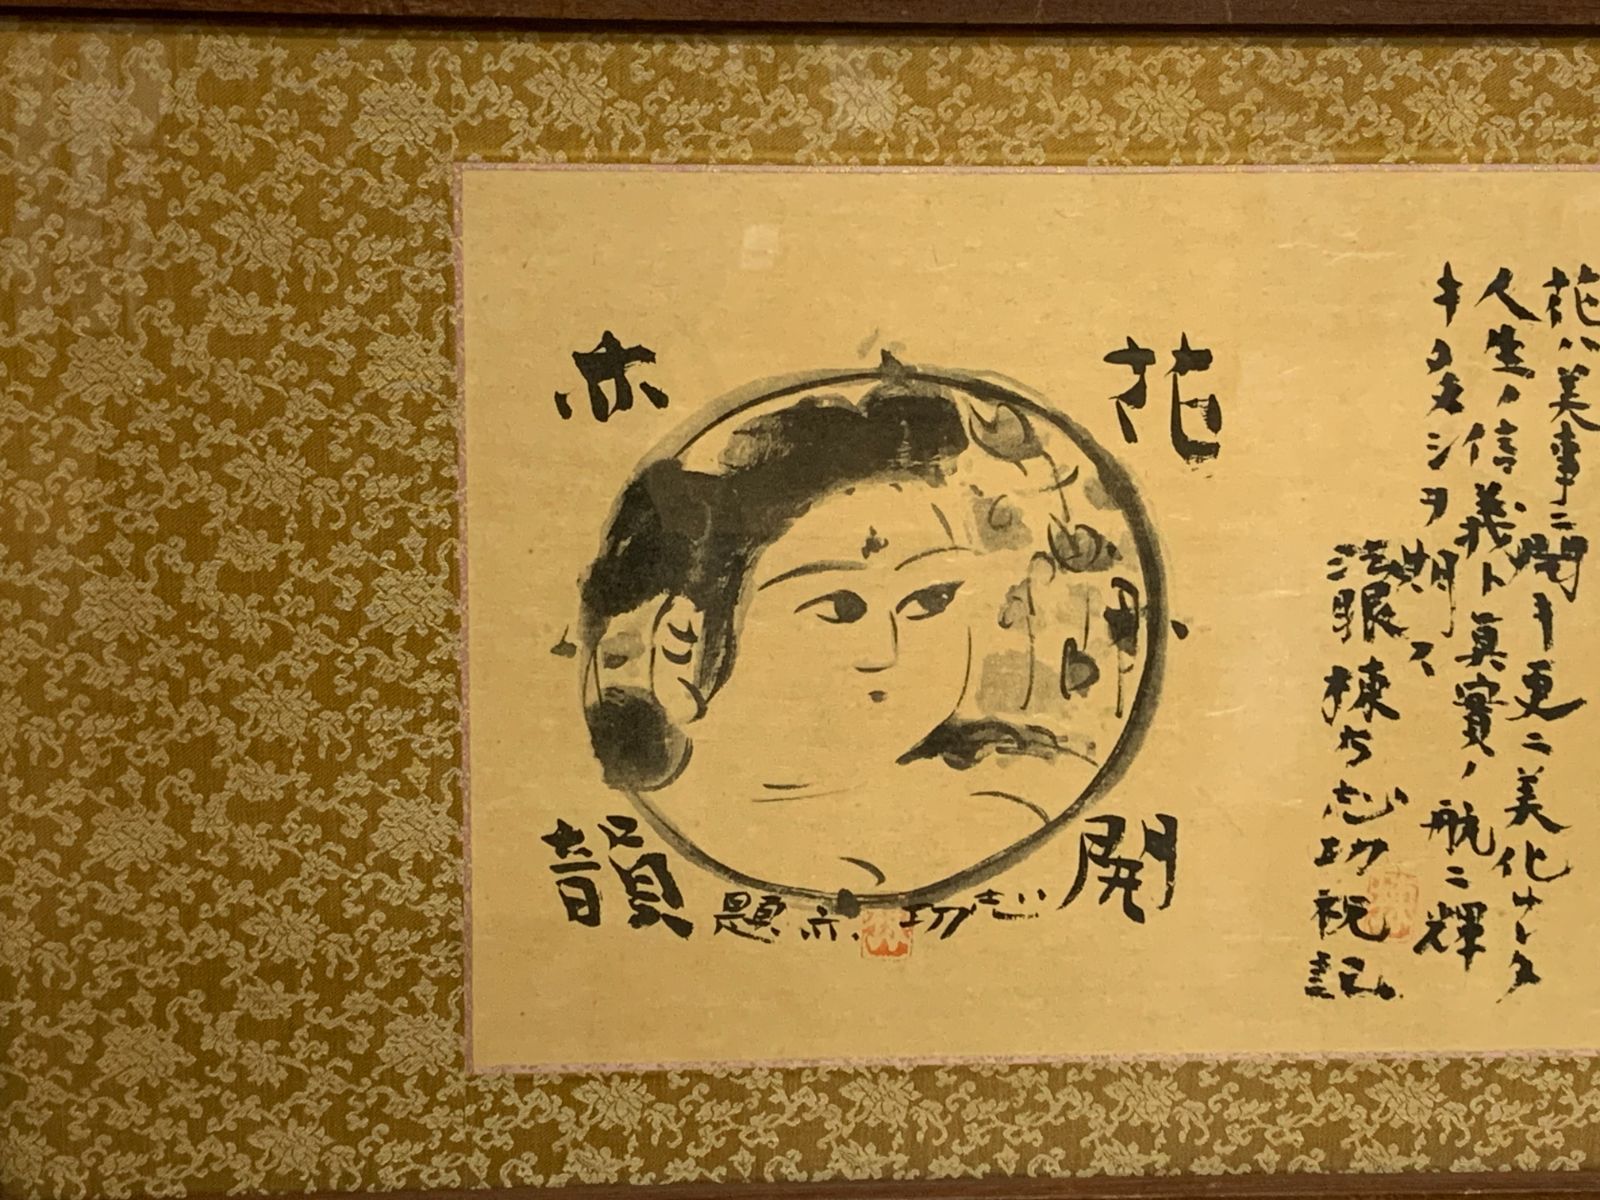 花ハ美事ニ開キ更ニ美化サレタ
人生ノ信義ト真實ノ航ニ輝
キタヌシヲ期ス
法眼棟方志功祝記
花
開
亦
韻
志功
亦題